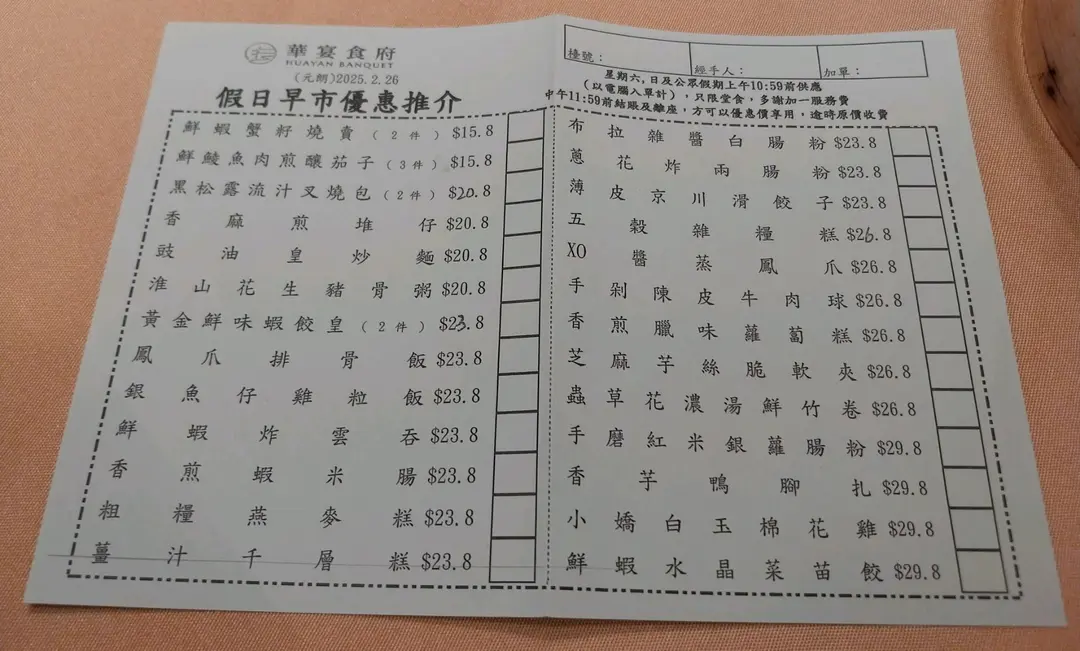 華宴食府
HUAYAN BANQUET
(元朗)2025.2.26
假日早市優惠推介
檯號：
經手人：
加單：
星期六,日及公眾假期上午10:59前供應
(以電腦入單計)，只限堂食，多謝加一服務費
中午11:59前結賬及離座，方可以優惠價享用，逾時原價收費
鮮蝦蟹籽燒賣（2件）$15.8
鮮鯪魚肉煎釀茄子（3件）$15.8
黑松露流汁叉燒包（2件）$20.8
香麻煎堆仔 $20.8
豉油皇炒麵 $20.8
淮山花生豬骨粥 $20.8
黃金鮮味蝦餃皇（2件）$23.8
鳳爪排骨飯 $23.8
銀魚仔雞粒飯 $23.8
鮮蝦炸雲吞 $23.8
香煎蝦米腸 $23.8
粗糧燕麥糕 $23.8
薑汁千層糕 $23.8
布拉雜醬白腸粉 $23.8
蔥花炸兩腸粉 $23.8
薄皮京川滑餃子 $23.8
五穀雜糧糕 $26.8
XO醬蒸鳳爪 $26.8
手剁陳皮牛肉球 $26.8
香煎臘味蘿蔔糕 $26.8
芝麻芋絲脆軟夾 $26.8
蟲草花濃湯鮮竹卷 $26.8
手磨紅米銀蘿腸粉 $29.8
香芋鴨腳扎 $29.8
小嬌白玉棉花雞 $29.8
鮮蝦水晶菜苗餃 $29.8